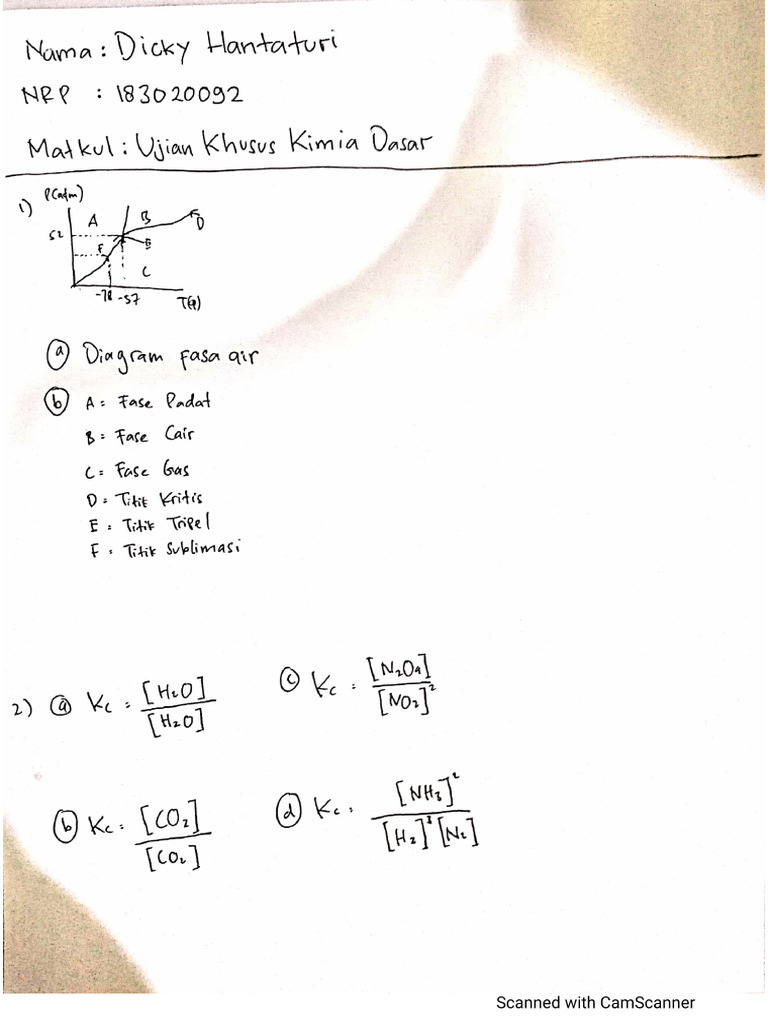 Nama : Dicky Hantaturi
NRP : 183020092
Matkul : Ujian Khusus Kimia Dasar
1)
P(atm)
A
B
D
52
E
F
C
-78 -57
T(°)
(a) Diagram fasa air
(b) A = Fase Padat
B = Fase Cair
C = Fase Gas
D = Titik Kritis
E = Titik Tripel
F = Titik Sublimasi
2) (a) Kc = [H2O] / [H2O]
(c) Kc = [N2O4] / [NO2]²
(b) Kc = [CO2] / [CO2]
(d) Kc = [NH3]² / [H2]³ [N2]
Scanned with CamScanner